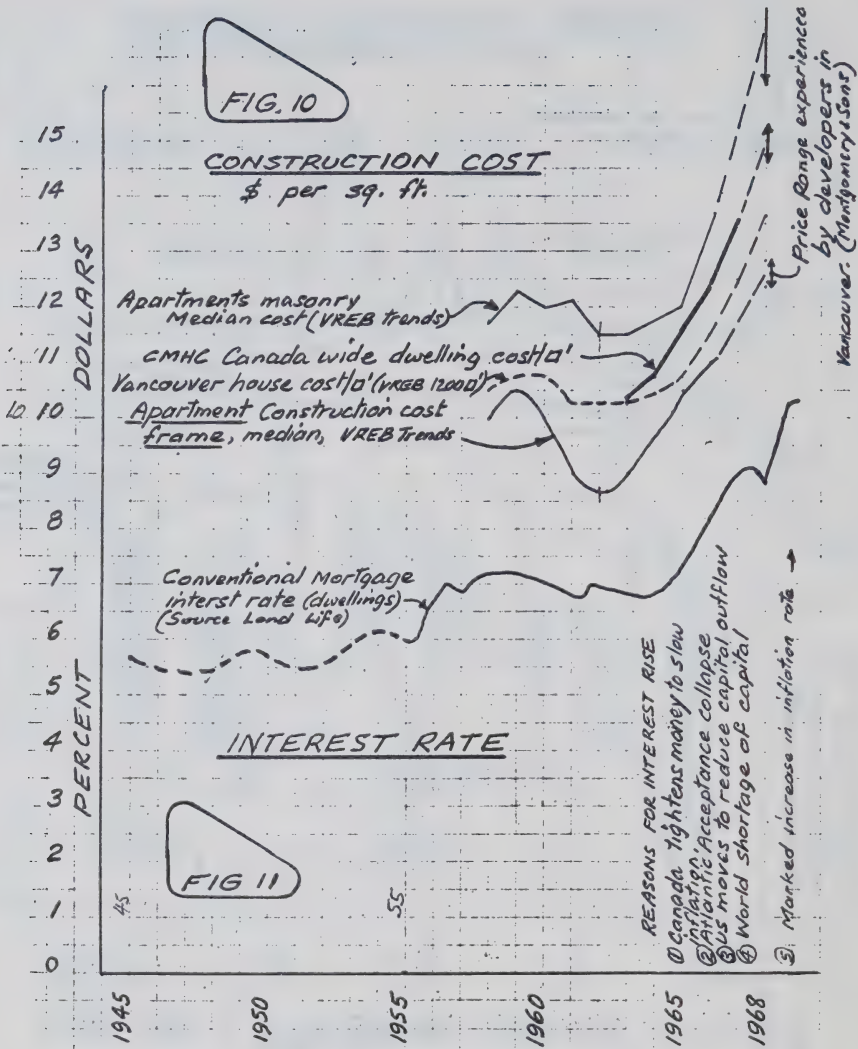 FIG. 10
CONSTRUCTION COST
$ per sq. ft.
15
14
13
12
11
10
10
9
8
7
6
5
4
3
2
1
0
DOLLARS
PERCENT
Apartments masonry
Median cost (VREB Trends)
CMHC Canada wide dwelling cost/□'
Vancouver house cost/□' (VREB 1200□')
Apartment Construction cost
frame, median, VREB Trends
Price Range experienced
by developers in
Vancouver. (Montgomery & Sons)
Conventional Mortgage
interst rate (dwellings)
(Source Lond Life)
INTEREST RATE
FIG 11
REASONS FOR INTEREST RISE
① Canada tightens money to slow
inflation
② Atlantic Acceptance collapse
③ US moves to reduce capital outflow
④ World shortage of capital
⑤ Marked increase in inflation rate →
45
55
1945
1950
1955
1960
1965
1968